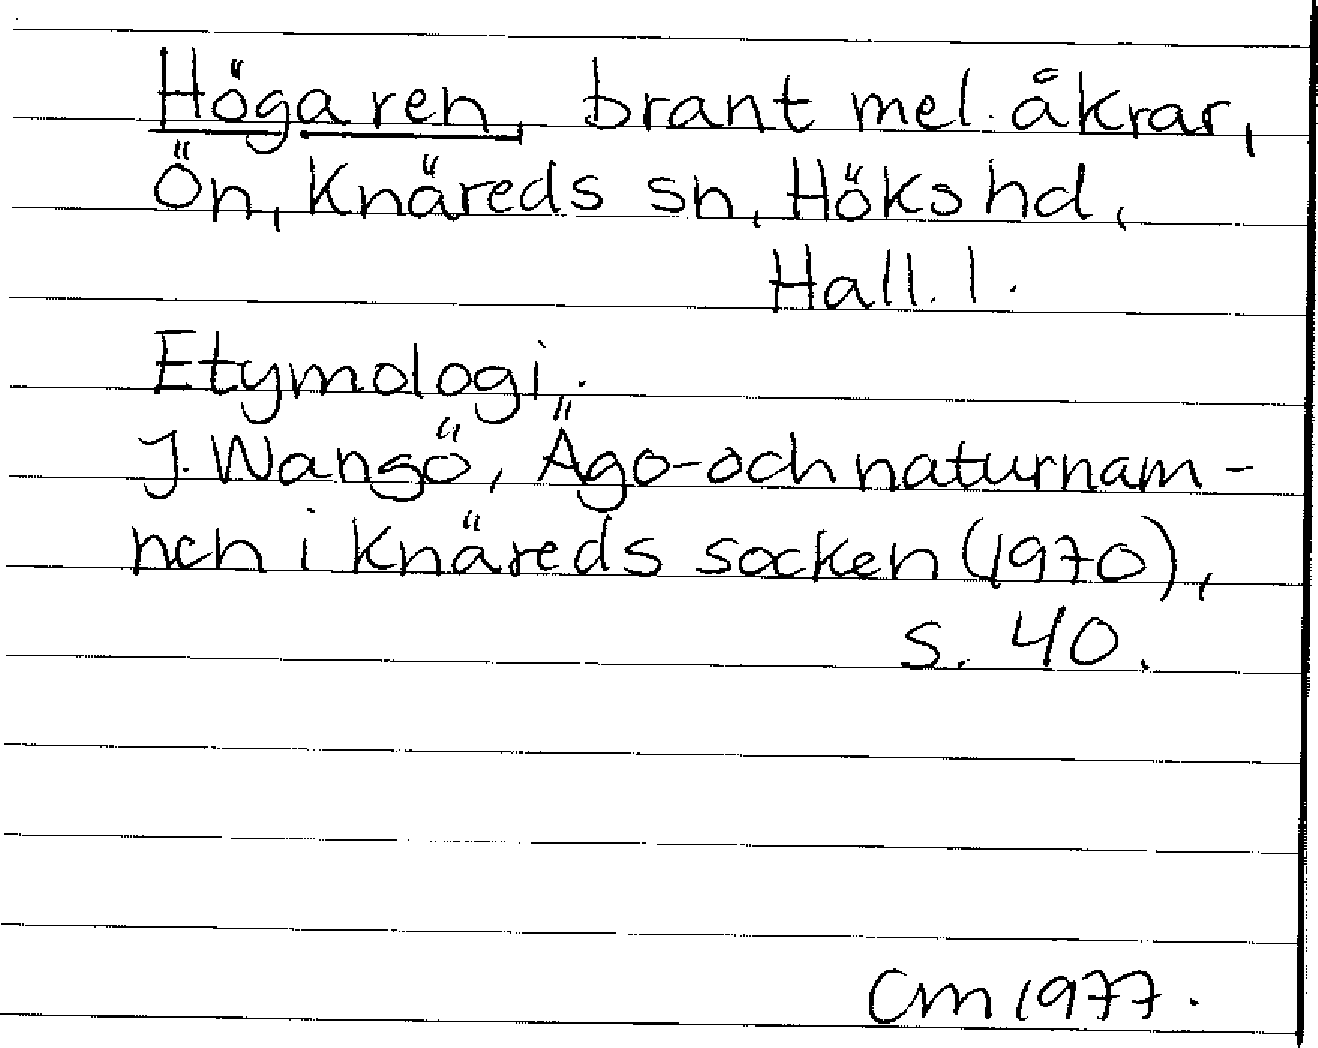 Höga ren, brant mel. åkrar,
Ön, Knäreds sn, Höks hd,
Hall. l.
Etymologi:
J. Wangö, Ägo- och naturnam-
nen i Knäreds socken (1970),
s. 40.
CM 1977.